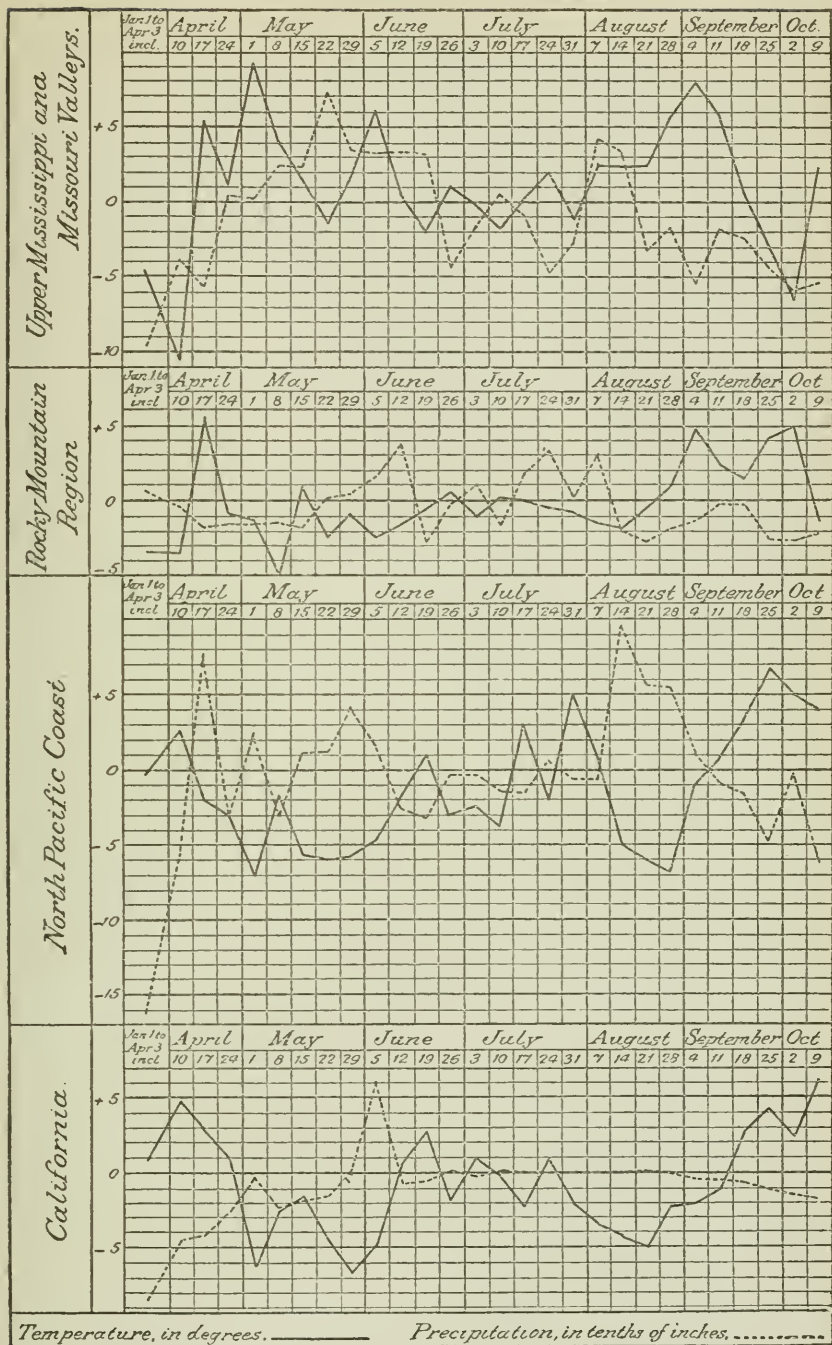 Upper Mississippi and
Missouri Valleys.
Jan. 1 to
Apr 3
incl.
April May June July August September Oct.
10 17 24 1 8 15 22 29 5 12 19 26 3 10 17 24 31 7 14 21 28 4 11 18 25 2 9
+5
0
-5
-10
Rocky Mountain
Region
Jan. 1 to
Apr 3
incl
April May June July August September Oct
10 17 24 1 8 15 22 29 5 12 19 26 3 10 17 24 31 7 14 21 28 4 11 18 25 2 9
+5
0
-5
North Pacific Coast
Jan 1 to
Apr 3
incl
April May June July August September Oct
10 17 24 1 8 15 22 29 5 12 19 26 3 10 17 24 31 7 14 21 28 4 11 18 25 2 9
+5
0
-5
-10
-15
California.
Jan 1 to
Apr 3
incl
April May June July August September Oct
10 17 24 1 8 15 22 29 5 12 19 26 3 10 17 24 31 7 14 21 28 4 11 18 25 2 9
+5
0
-5
Temperature, in degrees. Precipitation, in tenths of inches,